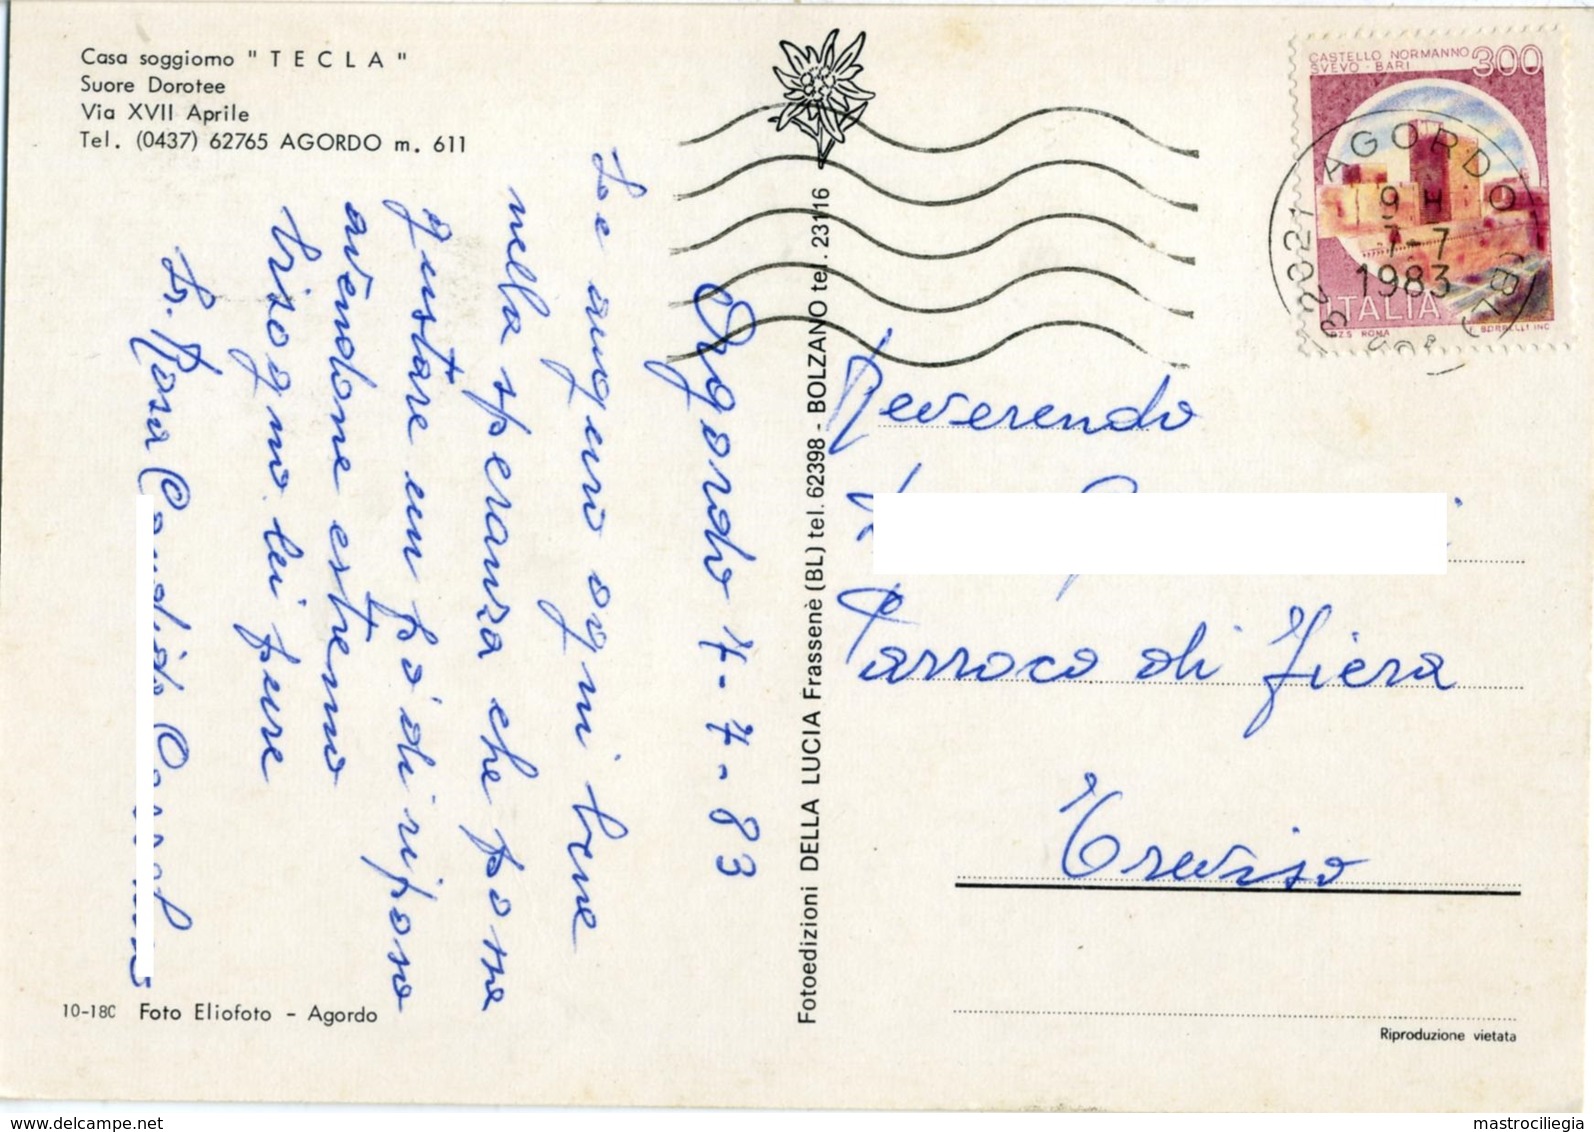 Casa soggiorno " T E C L A "
Suore Dorotee
Via XVII Aprile
Tel. (0437) 62765 AGORDO m. 611
Agordo 7-7-83
Le auguro ogni bene
nella speranza che possa
gustare un pò di riposo
avendone estremo
bisogno. lei pure
Sr. Rosa Candida
10-18C Foto Eliofoto - Agordo
Fotoedizioni DELLA LUCIA Frassenè (BL) tel. 62398 - BOLZANO tel. 23116
CASTELLO NORMANNO
SVEVO - BARI
300
ITALIA
I.P.Z.S. ROMA
E. BORRELLI INC.
32021 AGORDO (BL)
9 H
7-7
1983
Reverendo
Parroco di Fiera
Treviso
Riproduzione vietata
www.delcampe.net
mastrociliegia